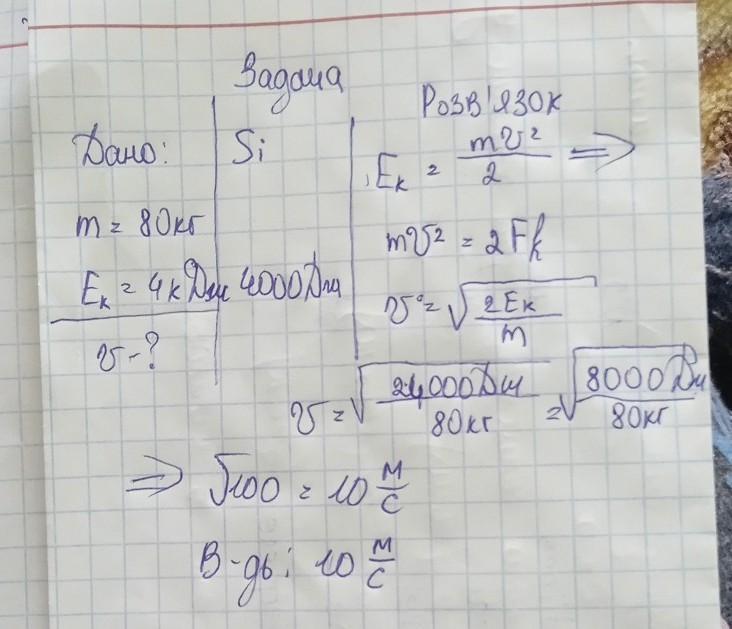 Задача
Дано:
m = 80кг
Eк = 4кДж
v - ?
Si
4000Дж
Розв'язок
Eк = mv²/2 ⇒
mv² = 2Fk
v = √(2Eк/m)
v = √(2·4000Дж/80кг) = √(8000Дж/80кг)
⇒ √100 = 10 м/с
В-дь: 10 м/с